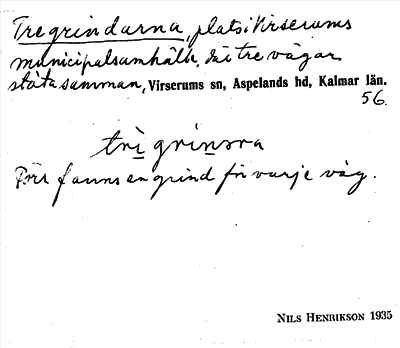 Tregrindarna, plats i Virserums
municipalsamhälle, där tre vägar
stöta samman, Virserums sn, Aspelands hd, Kalmar län.
56.
trì grìnora
Förr fanns en grind för varje väg.
NILS HENRIKSON 1935